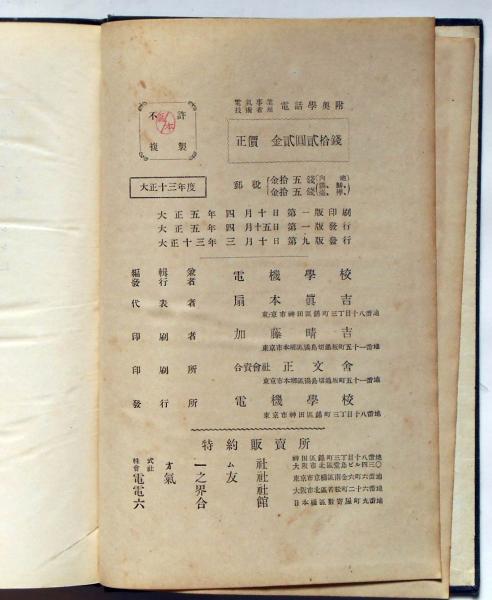 電氣事業
技術者用 電話學奧附
不許
複製
正價 金貳圓貳拾錢
大正十三年度
郵稅 金拾五錢
金拾五錢
大正五年四月十日第一版印刷
大正五年四月十五日第一版發行
大正十三年三月十日第九版發行
編輯兼
發行者 電機學校
代表者 扇本眞吉
東京市神田區錦町三丁目十八番地
印刷者 加藤晴吉
東京市本鄉區湯島切通坂町五十一番地
印刷所 合資會社 正文舍
東京市本鄉區湯島切通坂町五十一番地
發行所 電機學校
東京市神田區錦町三丁目十八番地
特約販賣所
株式會社 オーム社
神田區錦町三丁目十八番地
大阪市北區堂島ビル四三〇
電氣之友社
東京市京橋區南金六町六番地
電界社
大阪市北區若松町二十六番地
六合館
日本橋區數寄屋町九番地